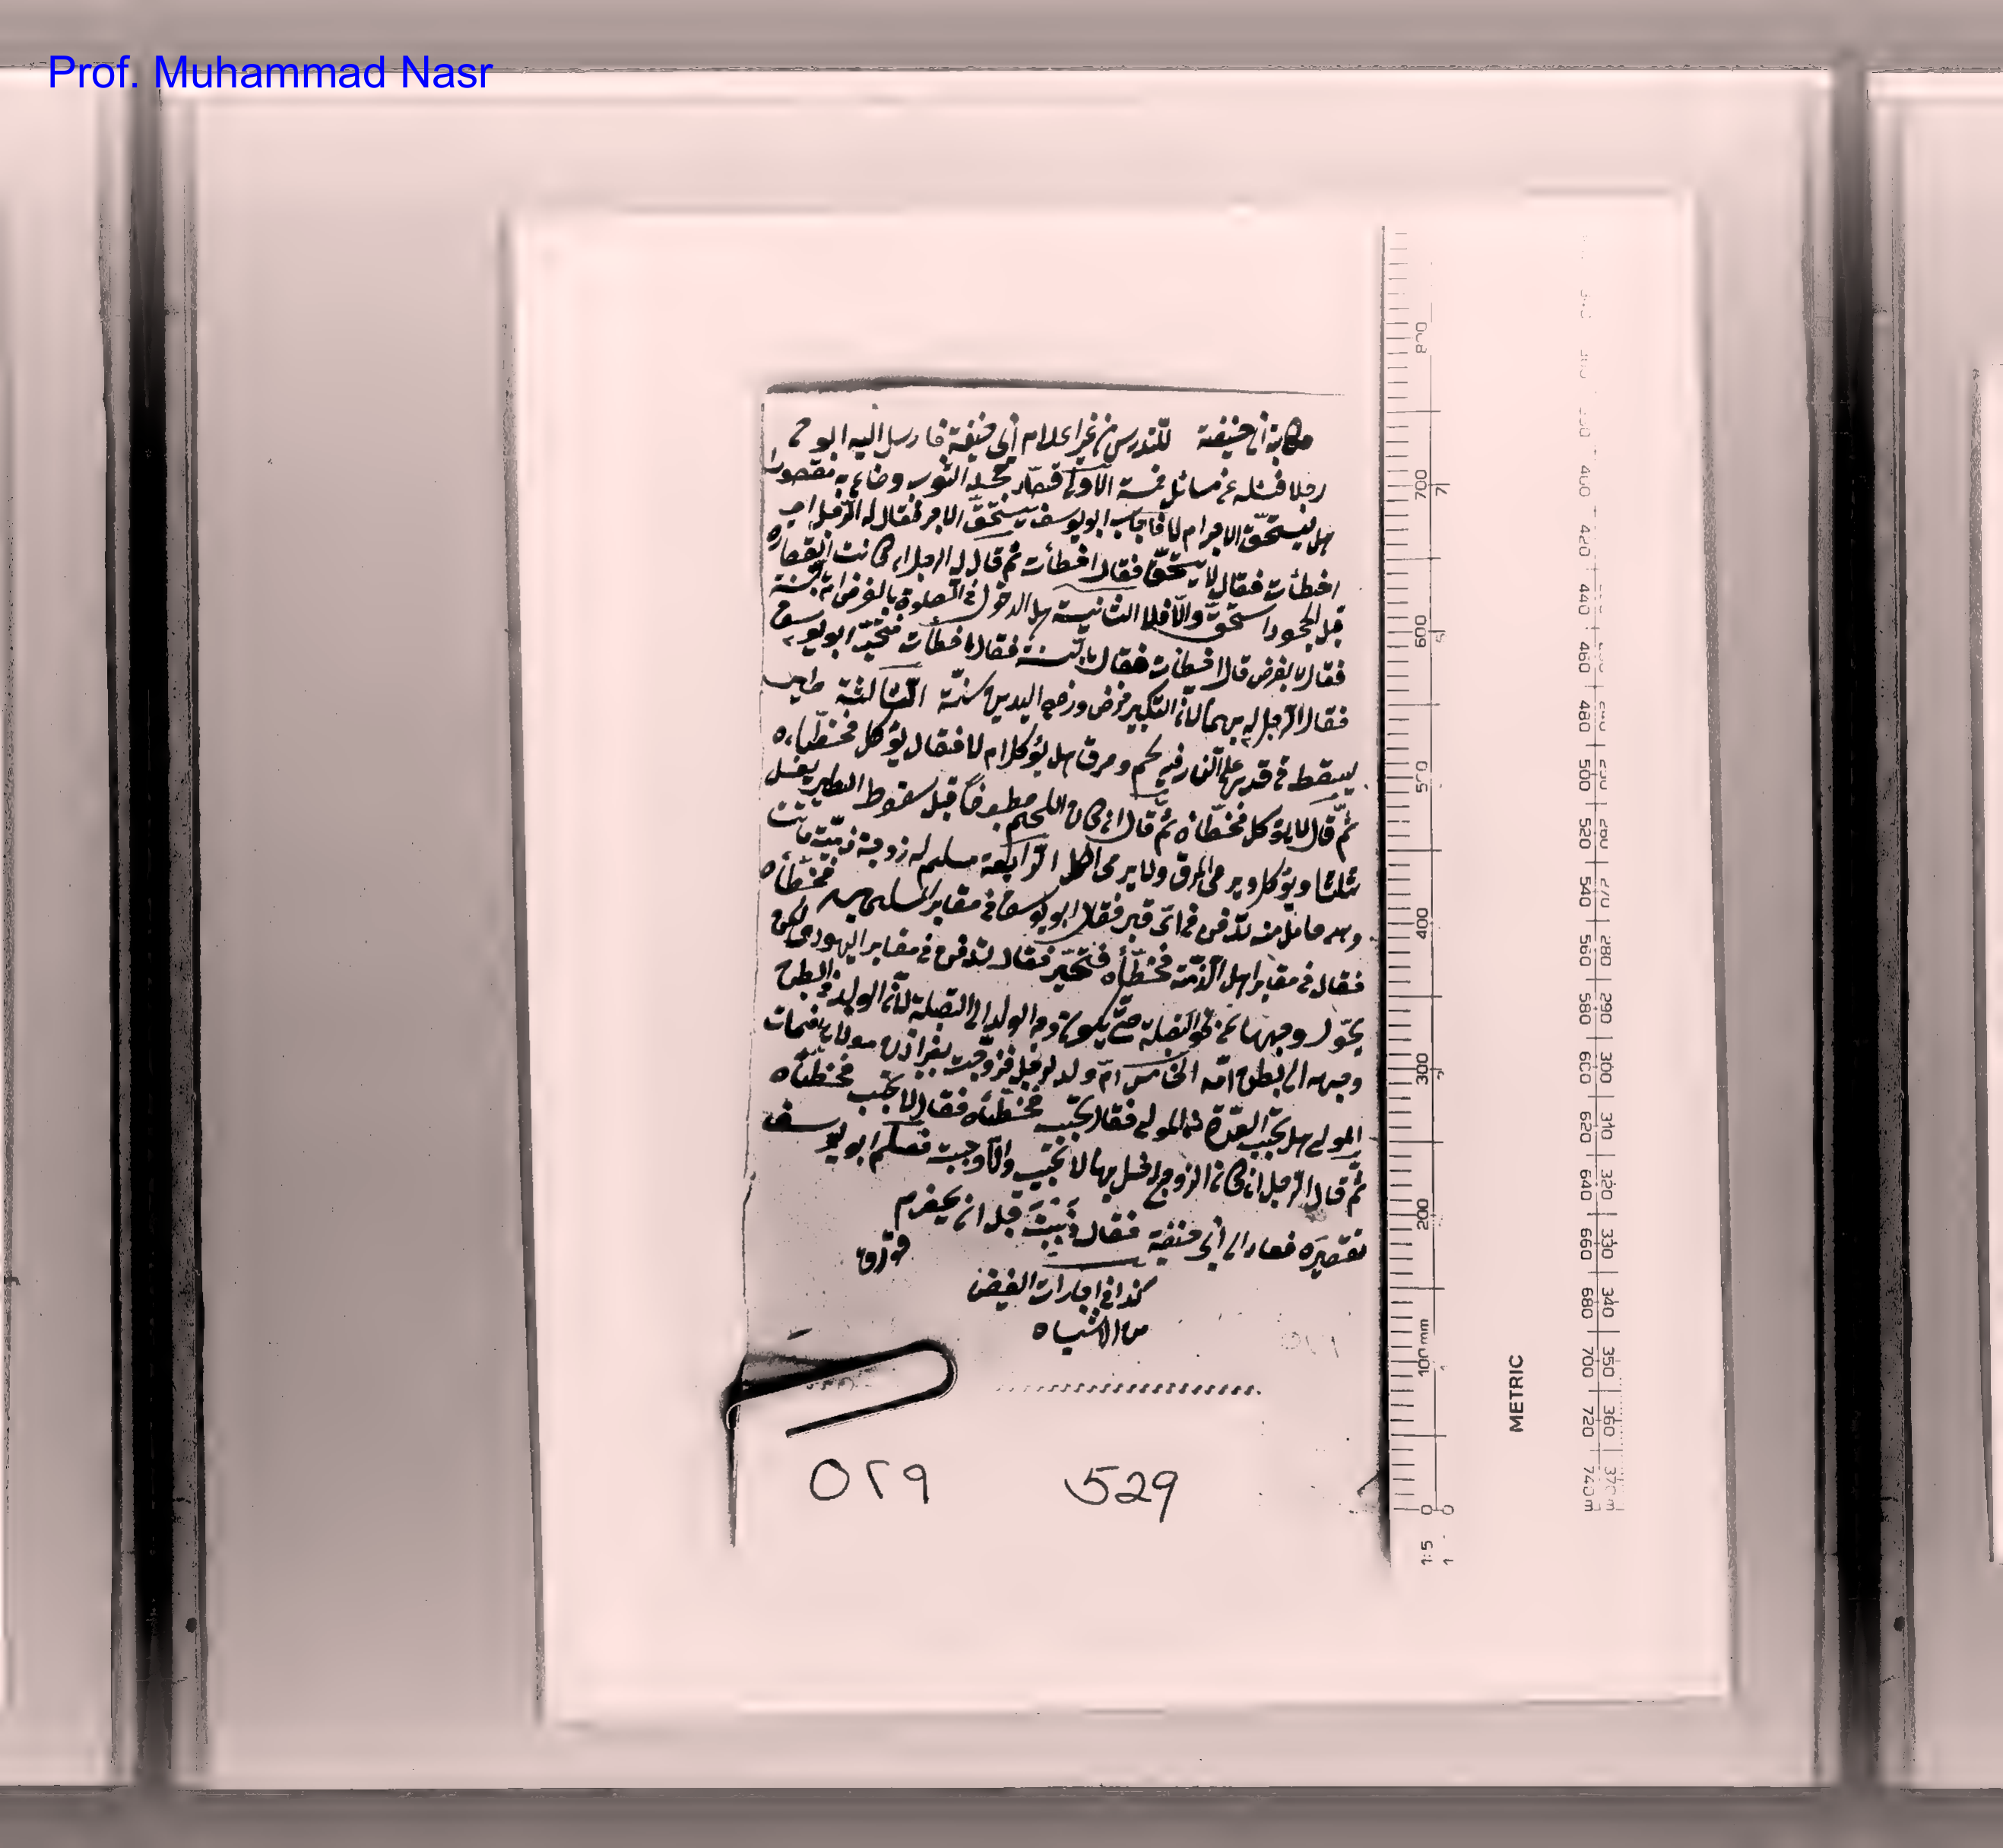 Prof. Muhammad Nasr
حكاية أبي حنيفة للتدريس من غير اعلام أبي حنيفة فارسل اليه ابو ح
رجلا فسئله عن مسائل خمسة الأولى قصّار جحد الثوب وجاء به مقصورا
هل يستحقّ الاجر ام لا فاجاب ابو يوسف يستحقّ الاجر فقال له الرّجل
اخطأت فقال لا يستحقّ فقال اخطأت ثم قال له الرجل ان كانت القصارة
قبل الجحود استحقّ والّا فلا الثانية هل الدخول في الصلوة بالفرض ام بالسنة
فقال بالفرض قال اخطأت فقال بالسّنة فقال اخطأت فتحيّر ابو يوسف
فقال الرّجل بهما لأنّ التكبير فرض ورفع اليدين سنّة الثالثة طير
سقط في قدر على النّار فيه لحم ومرق هل يؤكل ام لا فقال يؤكل فخطّأه
ثم قال لا يؤكل فخطّأه ثمّ قال ان كان اللحم مطبوخاً قبل سقوط الطير يغسل
ثلثا ويؤكل ويرمى المرق والا يرمى الكل الرّابعة مسلم له زوجة ذمّيّة ماتت
وهي حامل منه تدفن في أيّ قبر فقال ابو يوسف في مقابر المسلمين فخطّأه
فقال في مقابر اهل الذّمّة فخطّأه فتحيّر فقال تدفن في مقابر اليهود ولكن
يحوّل وجهها عن القبلة حتّى يكون وجه الولد الى القبلة لأنّ الولد في البطن
وجهه الى بطن امّه الخامس امّ ولد لرجل فزوّجت بغير اذن مولاها فمات
المولى هل تجب العدّة من المولى فقال تجب فخطّأه فقال لا تجب فخطّأه
ثمّ قال الرّجل ان كان الزوج دخل بها لا تجب والّا وجبت فعلم ابو يوسف
تقصيره فعاد الى أبي حنيفة فقال تزبّبت قبل ان تحصرم
كذا في اجارات الفيض
من الاشباه
٥٢٩ 529
METRIC